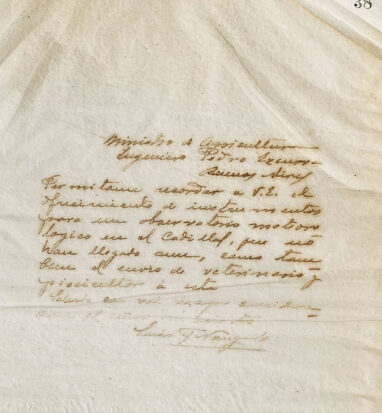 38
Ministro de Agricultura
Ingeniero Pedro Ezcurra
Buenos Aires
Permitame recordar a V.E. el
ofrecimiento de instrumentos
para un observatorio meteoro
logico en el Cadillal, que no
han llegado aun, como tam-
bien el envio de veterinario y
piscicultor à esta
Saludo con mi mayor consider
Luis F Nougués